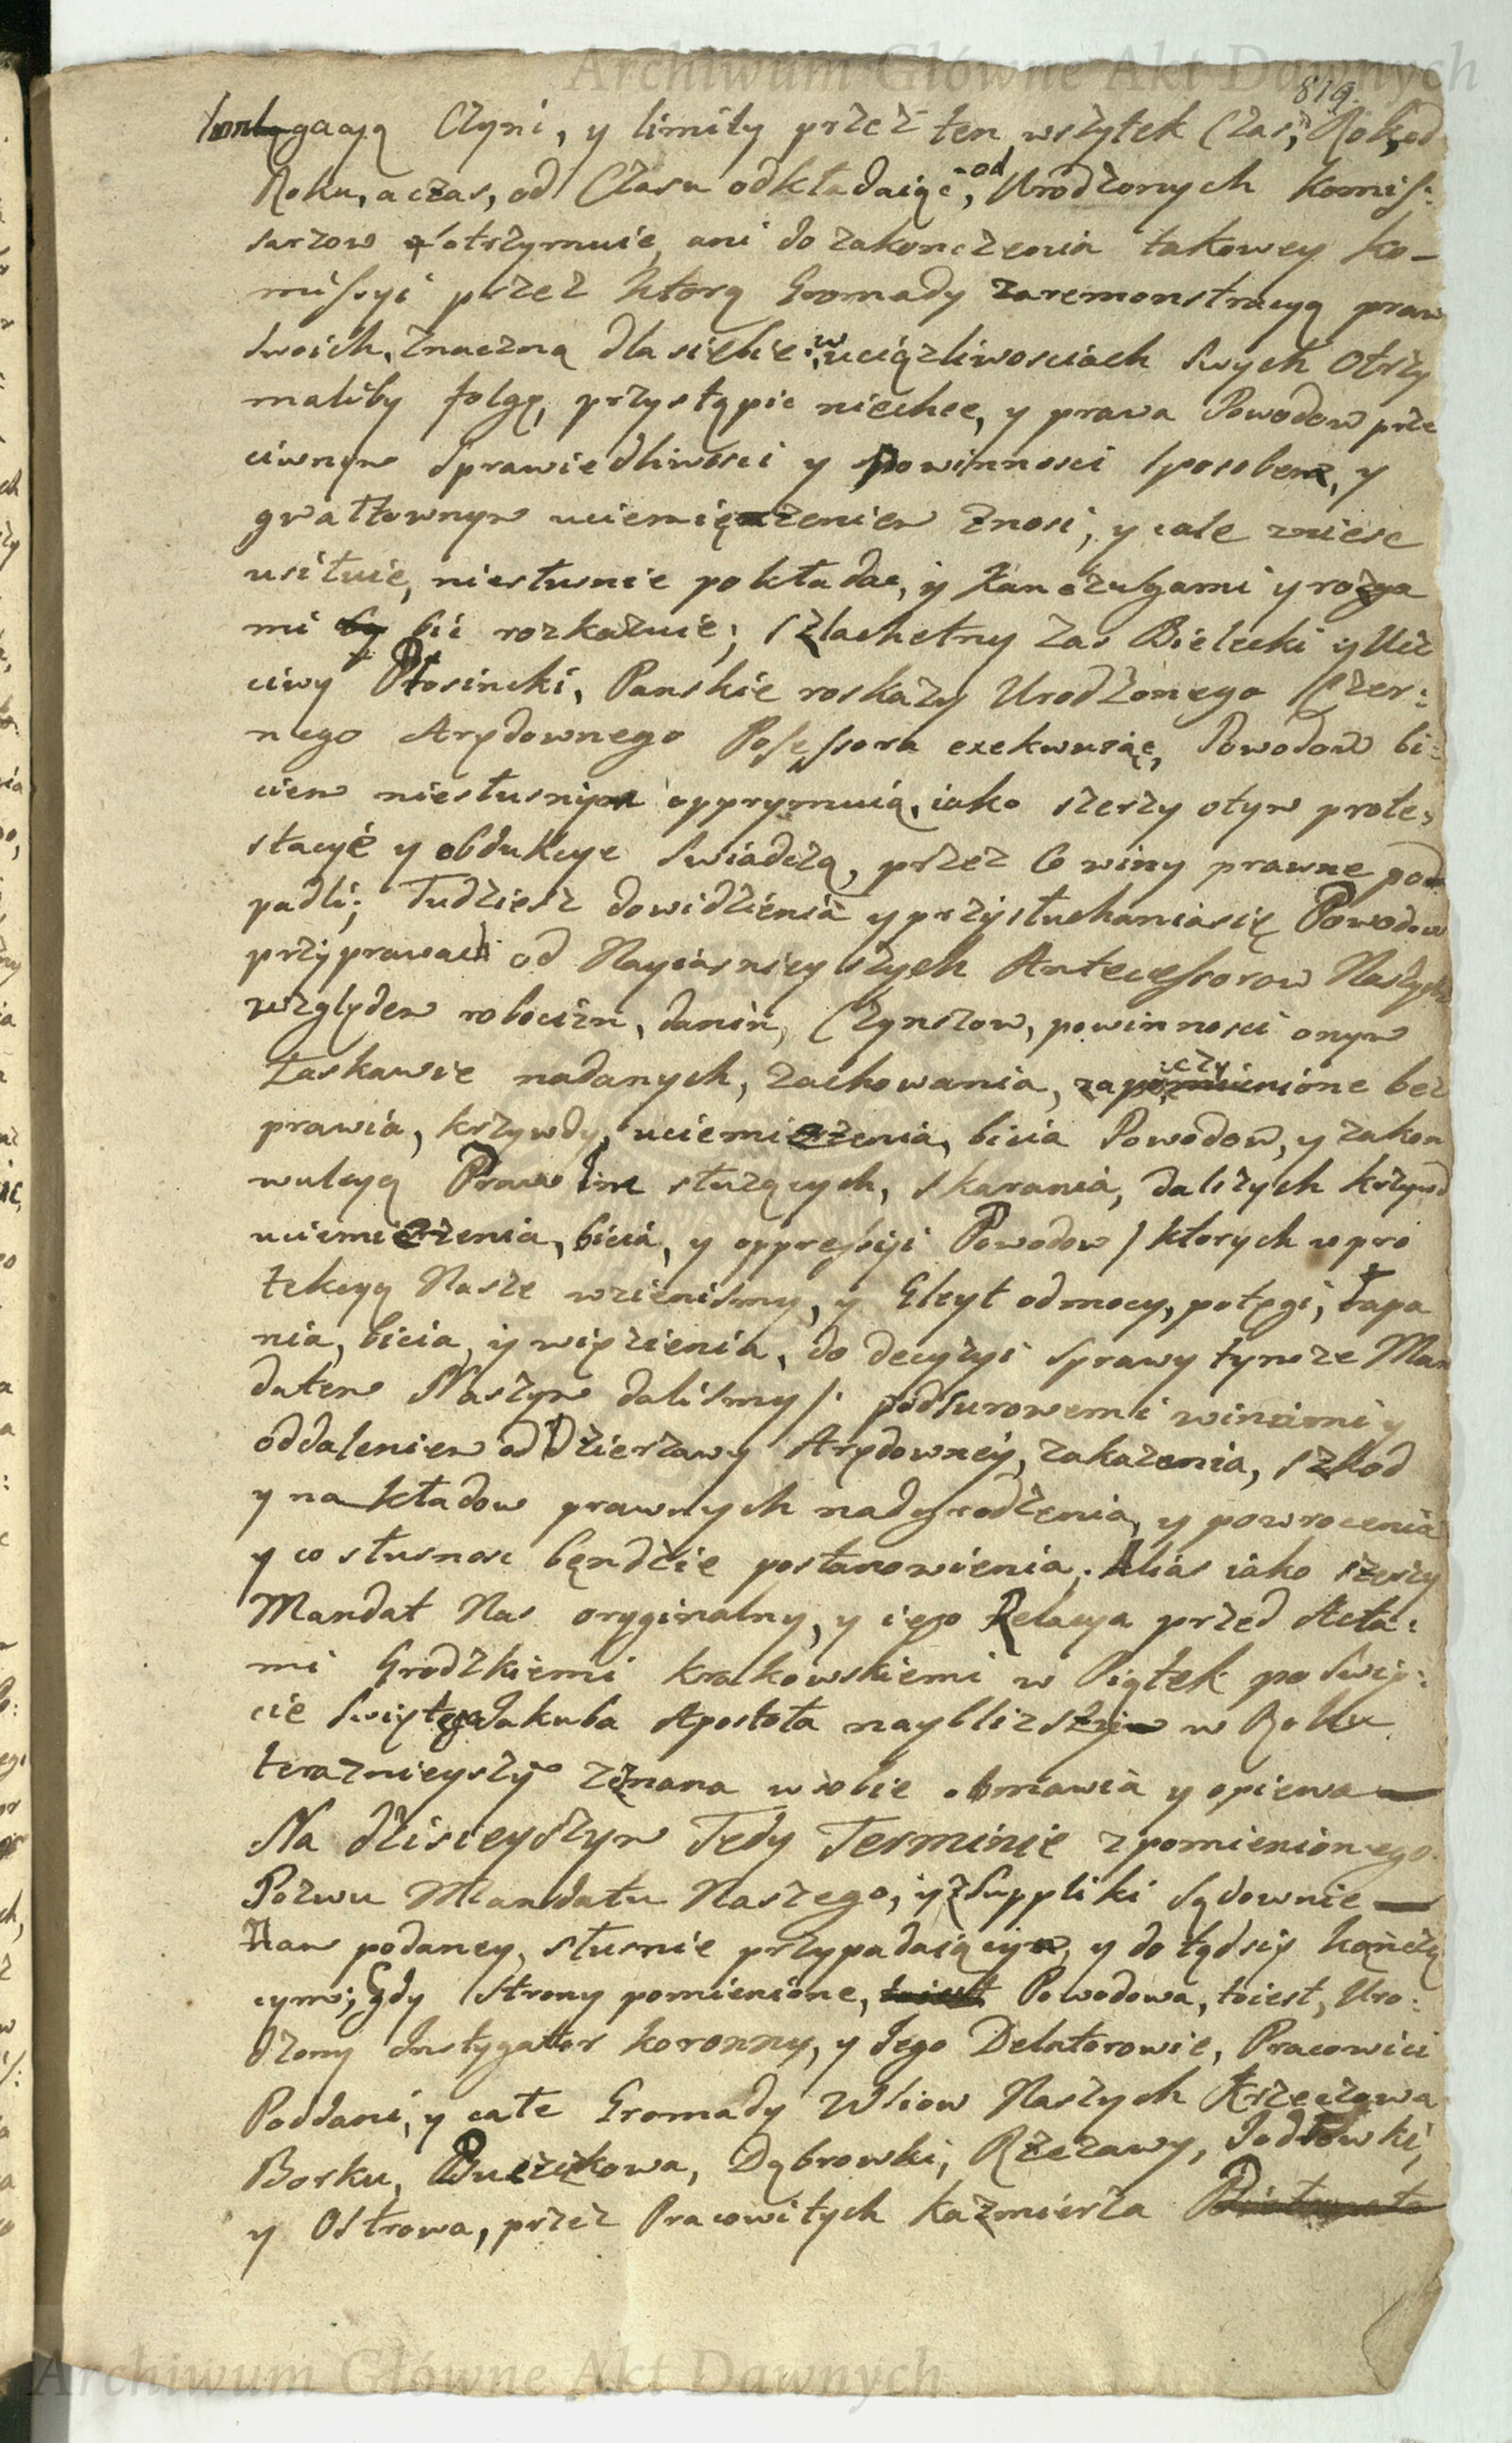 Archiwum Główne Akt Dawnych
819.
gacyą Czyni, y limity przez ten wszytek Czas, Rok, od
Roku, a czas, od Czasu odkładaiąc, od Urodzonych Komis:
sarzow otrzymuie, ani do zakonczenia takowey Ko-
missyi przez ktorą Gromady zaremonstracyą praw
swoich, znaczną dla siebie w uciązliwosciach swych Otrzy
maliby folgę, przystąpic niechce, y prawa Powodow prze
ciwnym Sprawiedliwosci y powinnosci sposobem, y
gwałtownym uciemięzeniem znosi, y cale zniesc
usiłuie, niesłusnie pokładac, y Kanczugami y rozga
mi bic rozkazuie; Szlachetny zas Bielecki y Ucz
ciwy Płosincki, Panskie roskazy Urodzonego Czer:
nego Arędownego Possessora exekwuiąc, Powodow bi:
ciem niesłusnym opprymuią, iako szerzy otym prote:
stacye y obdukcye swiadczą, przez Co winy prawne pod
padli; Tudziesz dowidzenia y przysłuchaniasię Powodow
przy prawach od Nayiasnieyszych Antecessorow Naszych
względem robocizn, danin, Czynszow, powinnosci onym
Łaskawie nadanych, zachowania, bez
prawia, krzywdy, uciemięzenia, bicia Powodow, y zakon
wulcyą Praw Im słuzących, skarania, dalszych krzywd
uciemięzenia, bicia, y oppressyi Powodow / ktorych w pro
tekcyą Nasze wzieniśmy, y Gleyt od mocy, potęgi, łapa
nia, bicia, y więzienia, do decyzyi sprawy tymze Man
datem Naszym dalismy /: pod surowemi winami y
oddaleniem od Dzierzawy Arędowney, zakazenia, szkod
y nakładow prawnych nadgrodzenia, y powrocenia
y co słusnosc będzie postanowienia; Alias iako szerzy
Mandat Nas oryginalny, y iego Relacya przed Acta:
mi Grodzkiemi Krakowskiemi w Piątek po Swię:
cie Swiętego Jakuba Apostoła nayblizszym w Roku
teraznieyszy zeznana w sobie obmawia y opiewa
Na dzisieyszym Tedy Terminie z pomienionego
Pozwu Mandatu Naszego, y z Suppliki Sądownie
Nam podaney, słusnie przypadaiącym, y do tądsię kączą
cym; Gdy Strony pomienione, Powodowa, toiest, Uro:
dzony Instygator Koronny, y Jego Delatorowie, Pracowici
Poddani, y całe Gromady Wsiow Naszych Krzeczowa
Borku, Buczkowa, Dąbrowki, Rzezawy, Jodłowki,
y Ostrowa, przez Pracowitych Kazmierza
Archiwum Główne Akt Dawnych